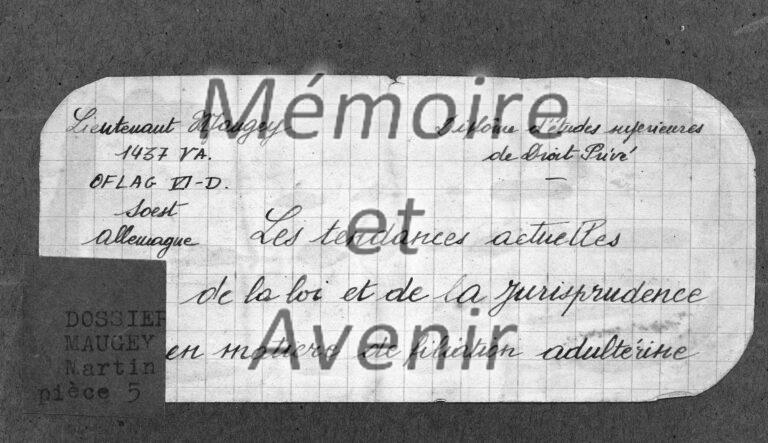 Lieutenant Maugey
1437 VA.
OFLAG VI-D.
Soest
Allemagne
Diplôme d'études supérieures
de Droit Privé
Les tendances actuelles
de la loi et de la Jurisprudence
en matière de filiation adultérine
DOSSIER
MAUGEY
Martin
pièce 5
Mémoire
et
Avenir